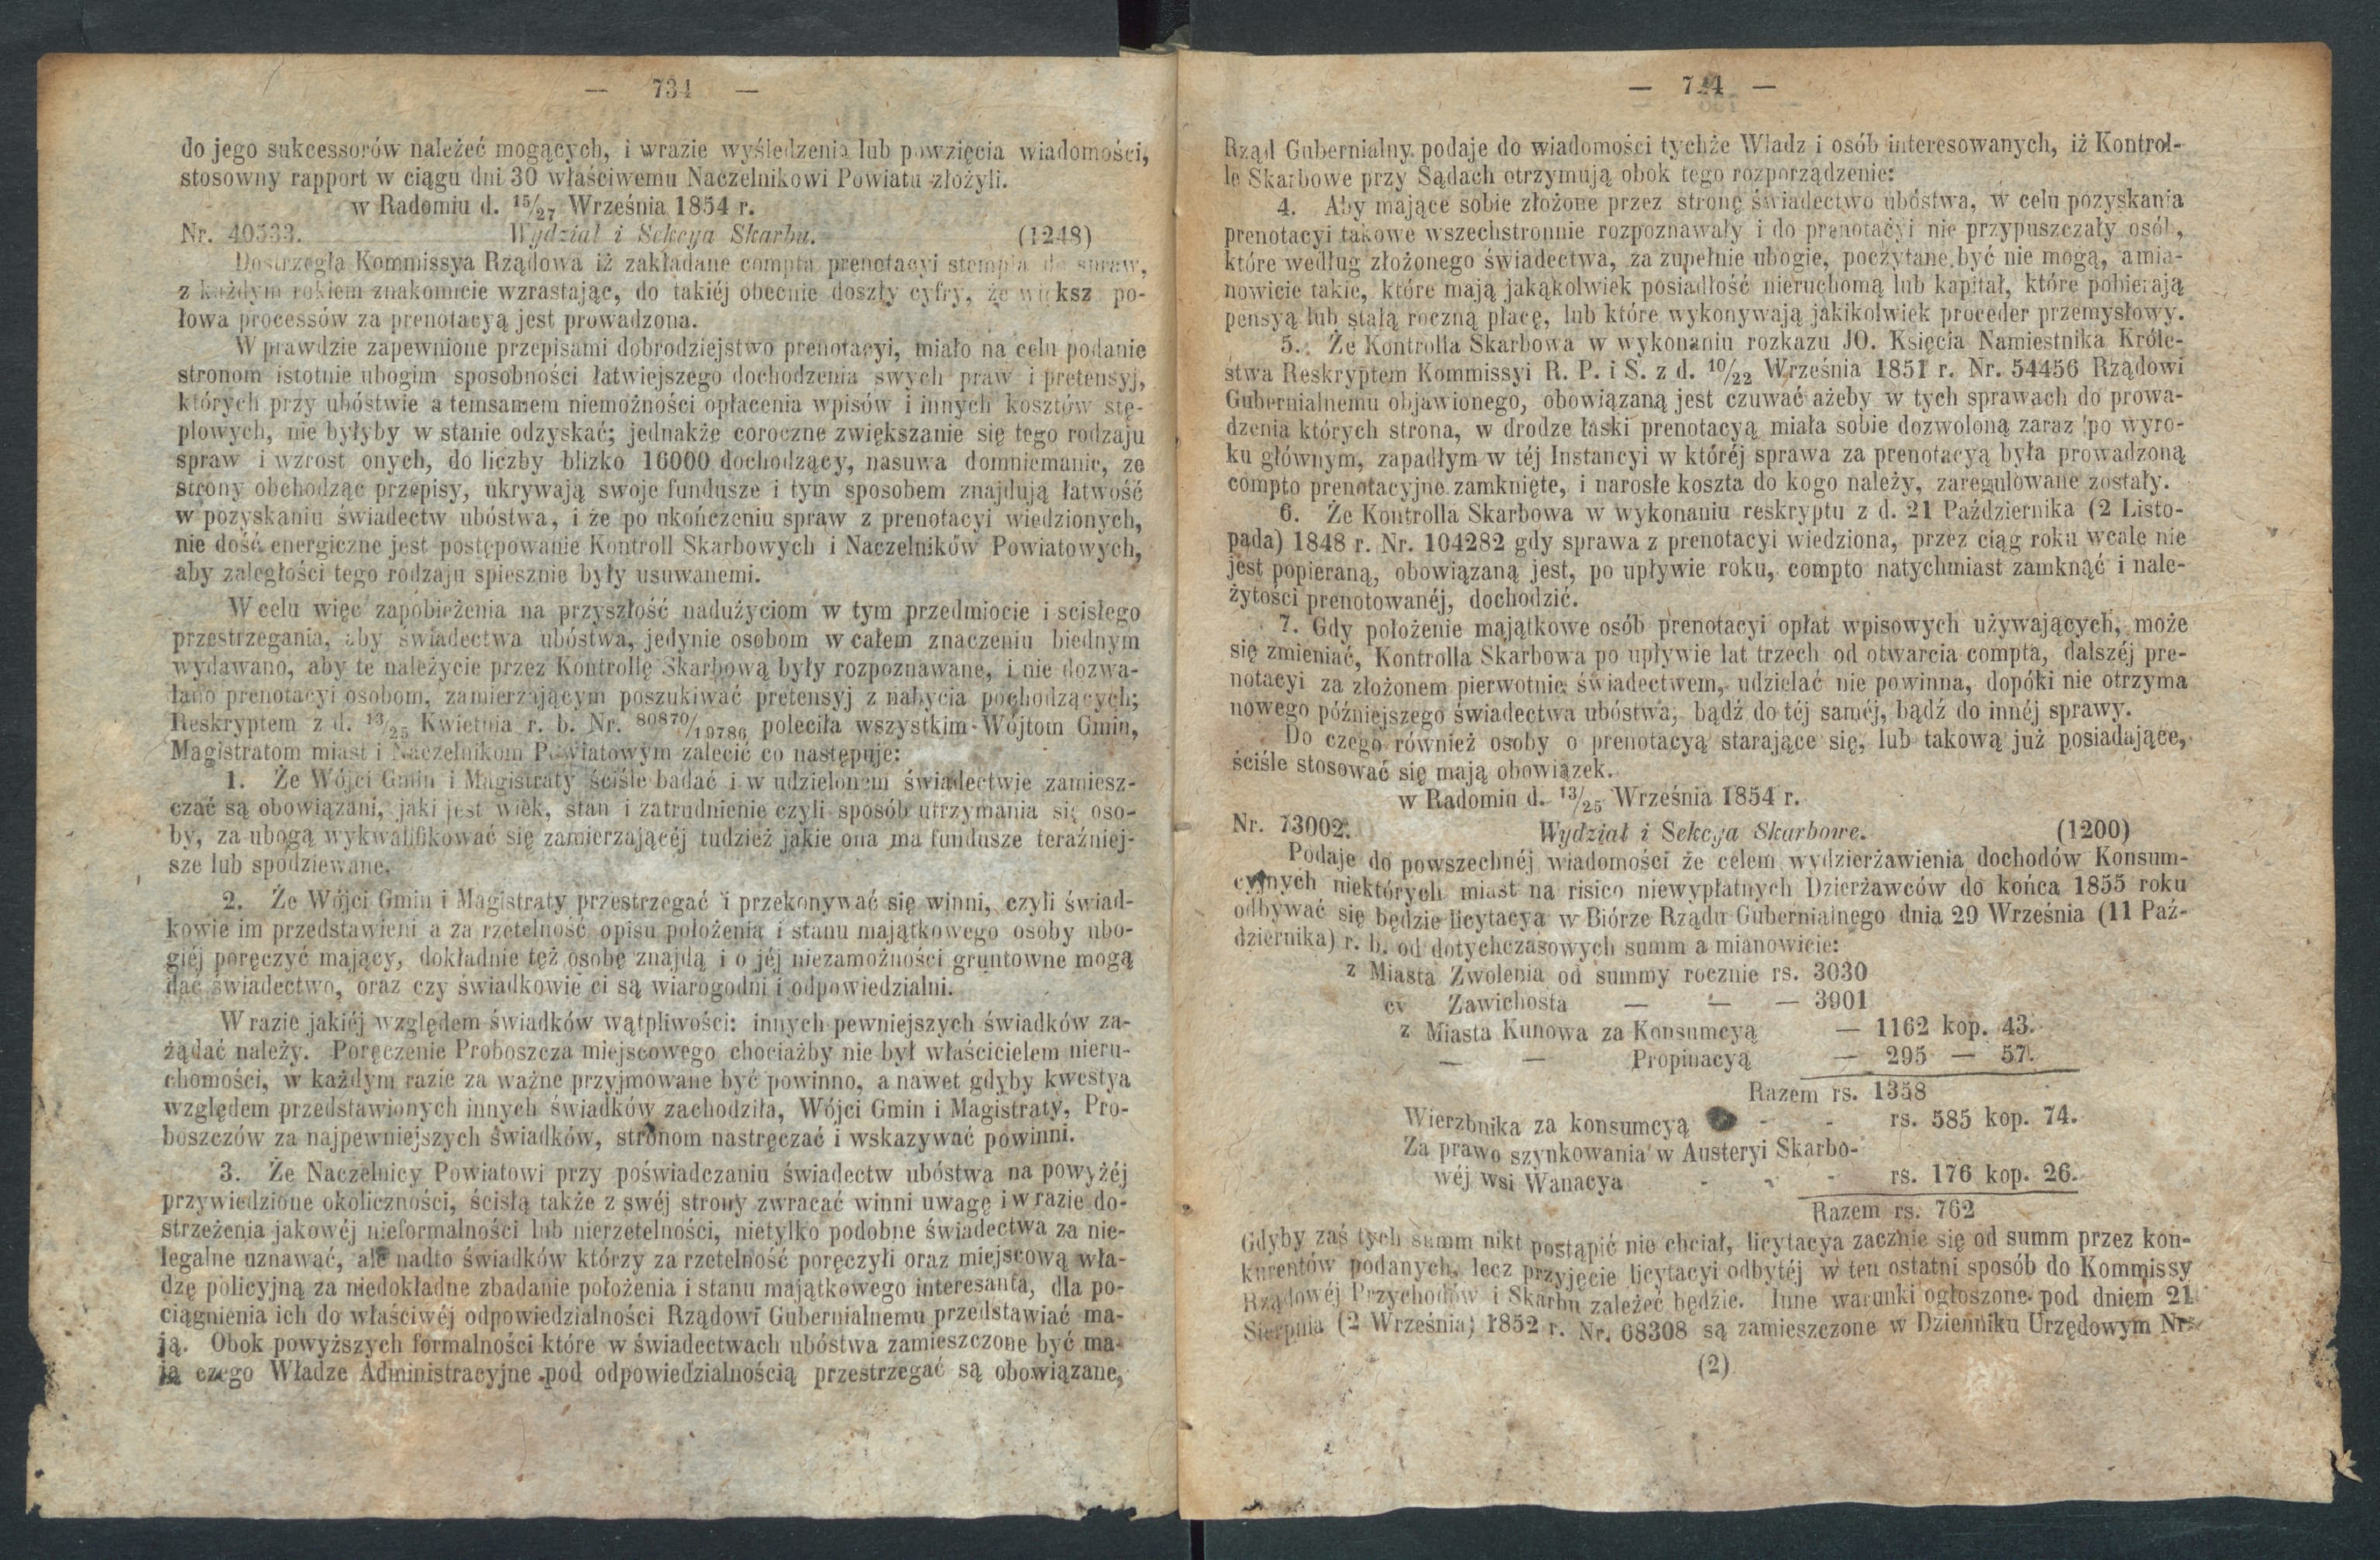 — 734 —
do jego sukcessorów należeć mogących, i wrazie wyśledzenia lub powzięcia wiadomości,
stosowny rapport w ciągu dni 30 właściwemu Naczelnikowi Powiatu złożyli.
w Radomiu d. 15/27 Września 1854 r.
Nr. 40533. Wydział i Sekcya Skarbu. (1248)
Dostrzegła Kommissya Rządowa iż zakładane compta prenotacyi stempla do spraw,
z każdym rokiem znakomicie wzrastając, do takiéj obecnie doszły cyfry, że większ po-
łowa processów za prenotacyą jest prowadzona.
W prawdzie zapewnione przepisami dobrodziejstwo prenotacyi, miało na celu podanie
stronom istotnie ubogim sposobności łatwiejszego dochodzenia swych praw i pretensyj,
których przy ubóstwie a temsamem niemożności opłacenia wpisów i innych kosztów stę-
plowych, nie byłyby w stanie odzyskać; jednakże coroczne zwiększanie się tego rodzaju
spraw i wzrost onych, do liczby blizko 16000 dochodzący, nasuwa domniemanie, ze
strony obchodząc przepisy, ukrywają swoje fundusze i tym sposobem znajdują łatwość
w pozyskaniu świadectw ubóstwa, i że po ukończeniu spraw z prenotacyi wiedzionych,
nie dość energiczne jest postępowanie Kontroll Skarbowych i Naczelników Powiatowych,
aby zaległości tego rodzaju spiesznie były usuwanemi.
W celu więc zapobieżenia na przyszłość nadużyciom w tym przedmiocie i scisłego
przestrzegania, aby świadectwa ubóstwa, jedynie osobom w całem znaczeniu biednym
wydawano, aby te należycie przez Kontrollę Skarbową były rozpoznawane, i nie dozwa-
lano prenotacyi osobom, zamierzającym poszukiwać pretensyj z nabycia pochodzących;
Reskryptem z d. 13/25 Kwietnia r. b. Nr. 80870/19786 poleciła wszystkim Wójtom Gmin,
Magistratom miast i Naczelnikom Powiatowym zalecić co następuje:
1. Że Wójci Gmin i Magistraty ściśle badać i w udzielonem świadectwie zamiesz-
czać są obowiązani, jaki jest wiek, stan i zatrudnienie czyli sposób utrzymania się oso-
by, za ubogą wykwalifikować się zamierzającéj tudzież jakie ona ma fundusze teraźniej-
sze lub spodziewane.
2. Że Wójci Gmin i Magistraty przestrzegać i przekonywać się winni, czyli świad-
kowie im przedstawieni a za rzetelność opisu położenia i stanu majątkowego osoby ubo-
giéj poręczyć mający, dokładnie też osobę znajdą i o jéj niezamożności gruntowne mogą
dać świadectwo, oraz czy świadkowie ci są wiarogodni i odpowiedzialni.
W razie jakiéj względem świadków wątpliwości: innych pewniejszych świadków za-
żądać należy. Poręczenie Proboszcza miejscowego chociażby nie był właścicielem nieru-
chomości, w każdym razie za ważne przyjmowane być powinno, a nawet gdyby kwestya
względem przedstawionych innych świadków zachodziła, Wójci Gmin i Magistraty, Pro-
boszczów za najpewniejszych świadków, stronom nastręczać i wskazywać powinni.
3. Że Naczelnicy Powiatowi przy poświadczaniu świadectw ubóstwa na powyżéj
przywiedzione okoliczności, ścisłą także z swéj strony zwracać winni uwagę i w razie do-
strzeżenia jakowéj nieformalności lub nierzetelności, nietylko podobne świadectwa za nie-
legalne uznawać, ale nadto świadków którzy za rzetelność poręczyli oraz miejscową wła-
dzę policyjną za niedokładne zbadanie położenia i stanu majątkowego interesanta, dla po-
ciągnienia ich do właściwéj odpowiedzialności Rządowi Gubernialnemu przedstawiać ma-
ją. Obok powyższych formalności które w świadectwach ubóstwa zamieszczone być ma-
ją czego Władze Administracyjne pod odpowiedzialnością przestrzegać są obowiązane,
— 724 —
Rząd Gubernialny podaje do wiadomości tychże Władz i osób interesowanych, iż Kontrol-
le Skarbowe przy Sądach otrzymują obok tego rozporządzenie:
4. Aby mające sobie złożone przez stronę świadectwo ubóstwa, w celu pozyskania
prenotacyi takowe wszechstronnie rozpoznawały i do prenotacyi nie przypuszczały osób,
które według złożonego świadectwa, za zupełnie ubogie, poczytane być nie mogą, a mia-
nowicie takie, które mają jakąkolwiek posiadłość nieruchomą lub kapitał, które pobierają
pensyą lub stałą roczną płacę, lub które wykonywają jakikolwiek proceder przemysłowy.
5. Że Kontrolla Skarbowa w wykonaniu rozkazu JO. Księcia Namiestnika Króle-
stwa Reskryptem Kommissyi R. P. i S. z d. 10/22 Września 1851 r. Nr. 54456 Rządowi
Gubernialnemu objawionego, obowiązaną jest czuwać ażeby w tych sprawach do prowa-
dzenia których strona, w drodze łaski prenotacyą miała sobie dozwoloną zaraz po wyro-
ku głównym, zapadłym w téj Instancyi w któréj sprawa za prenotacyą była prowadzoną
compto prenotacyjne zamknięte, i narosłe koszta do kogo należy, zaregulowane zostały.
6. Że Kontrolla Skarbowa w wykonaniu reskryptu z d. 21 Października (2 Listo-
pada) 1848 r. Nr. 104282 gdy sprawa z prenotacyi wiedziona, przez ciąg roku wcale nie
jest popieraną, obowiązaną jest, po upływie roku, compto natychmiast zamknąć i nale-
żytości prenotowanéj, dochodzić.
7. Gdy położenie majątkowe osób prenotacyi opłat wpisowych używających, może
się zmieniać, Kontrolla Skarbowa po upływie lat trzech od otwarcia compta, dalszéj pre-
notacyi za złożonem pierwotnie świadectwem, udzielać nie powinna, dopóki nie otrzyma
nowego późniejszego świadectwa ubóstwa, bądź do téj saméj, bądź do innéj sprawy.
Do czego również osoby o prenotacyą starające się, lub takową już posiadające,
ściśle stosować się mają obowiązek.
w Radomiu d. 13/25 Września 1854 r.
Nr. 73002. Wydział i Sekcya Skarbowe. (1200)
Podaje do powszechnéj wiadomości że celem wydzierżawienia dochodów Konsum-
cyjnych niektórych miast na risico niewypłatnych Dzierżawców do końca 1855 roku
odbywać się będzie licytacya w Biórze Rządu Gubernialnego dnia 29 Września (11 Paź-
dziernika) r. b. od dotychczasowych summ a mianowicie:
z Miasta Zwolenia od summy rocznie rs. 3030
cv Zawichosta — — — 3901
z Miasta Kunowa za Konsumcyą — 1162 kop. 43.
— — Propinacyą — 295 — 57.
Razem rs. 1358
Wierzbnika za konsumcyą - - rs. 585 kop. 74.
Za prawo szynkowania w Austeryi Skarbo-
wéj wsi Wanacya - - - rs. 176 kop. 26.
Razem rs. 762
Gdyby zaś tych summ nikt postąpić nie chciał, licytacya zacznie się od summ przez kon-
kurentów podanych, lecz przyjęcie licytacyi odbytéj w ten ostatni sposób do Kommissy
Rządowéj Przychodów i Skarbu zależeć będzie. Inne warunki ogłoszone pod dniem 21
Sierpnia (2 Września) 1852 r. Nr. 68308 są zamieszczone w Dzienniku Urzędowym Nr
(2)